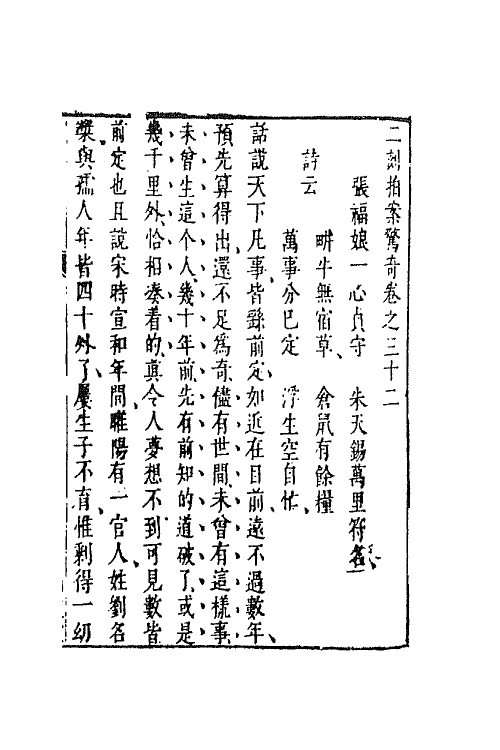 二刻拍案驚奇卷之三十二
張福娘一心貞守　朱天錫萬里符名
詩云
畊牛無宿草　倉鼠有餘糧
萬事分已定　浮生空自忙
話說天下凡事皆繇前定如近在目前遠不過數年
預先算得出還不足爲奇儘有世間未曾有這樣事
未曾生這个人幾十年前先有前知的道破了或是
幾千里外恰相湊着的真令人夢想不到可見數皆
前定也且說宋時宣和年間睢陽有一官人姓劉名
槳與孺人年皆四十外了屢生子不育惟剩得一幼